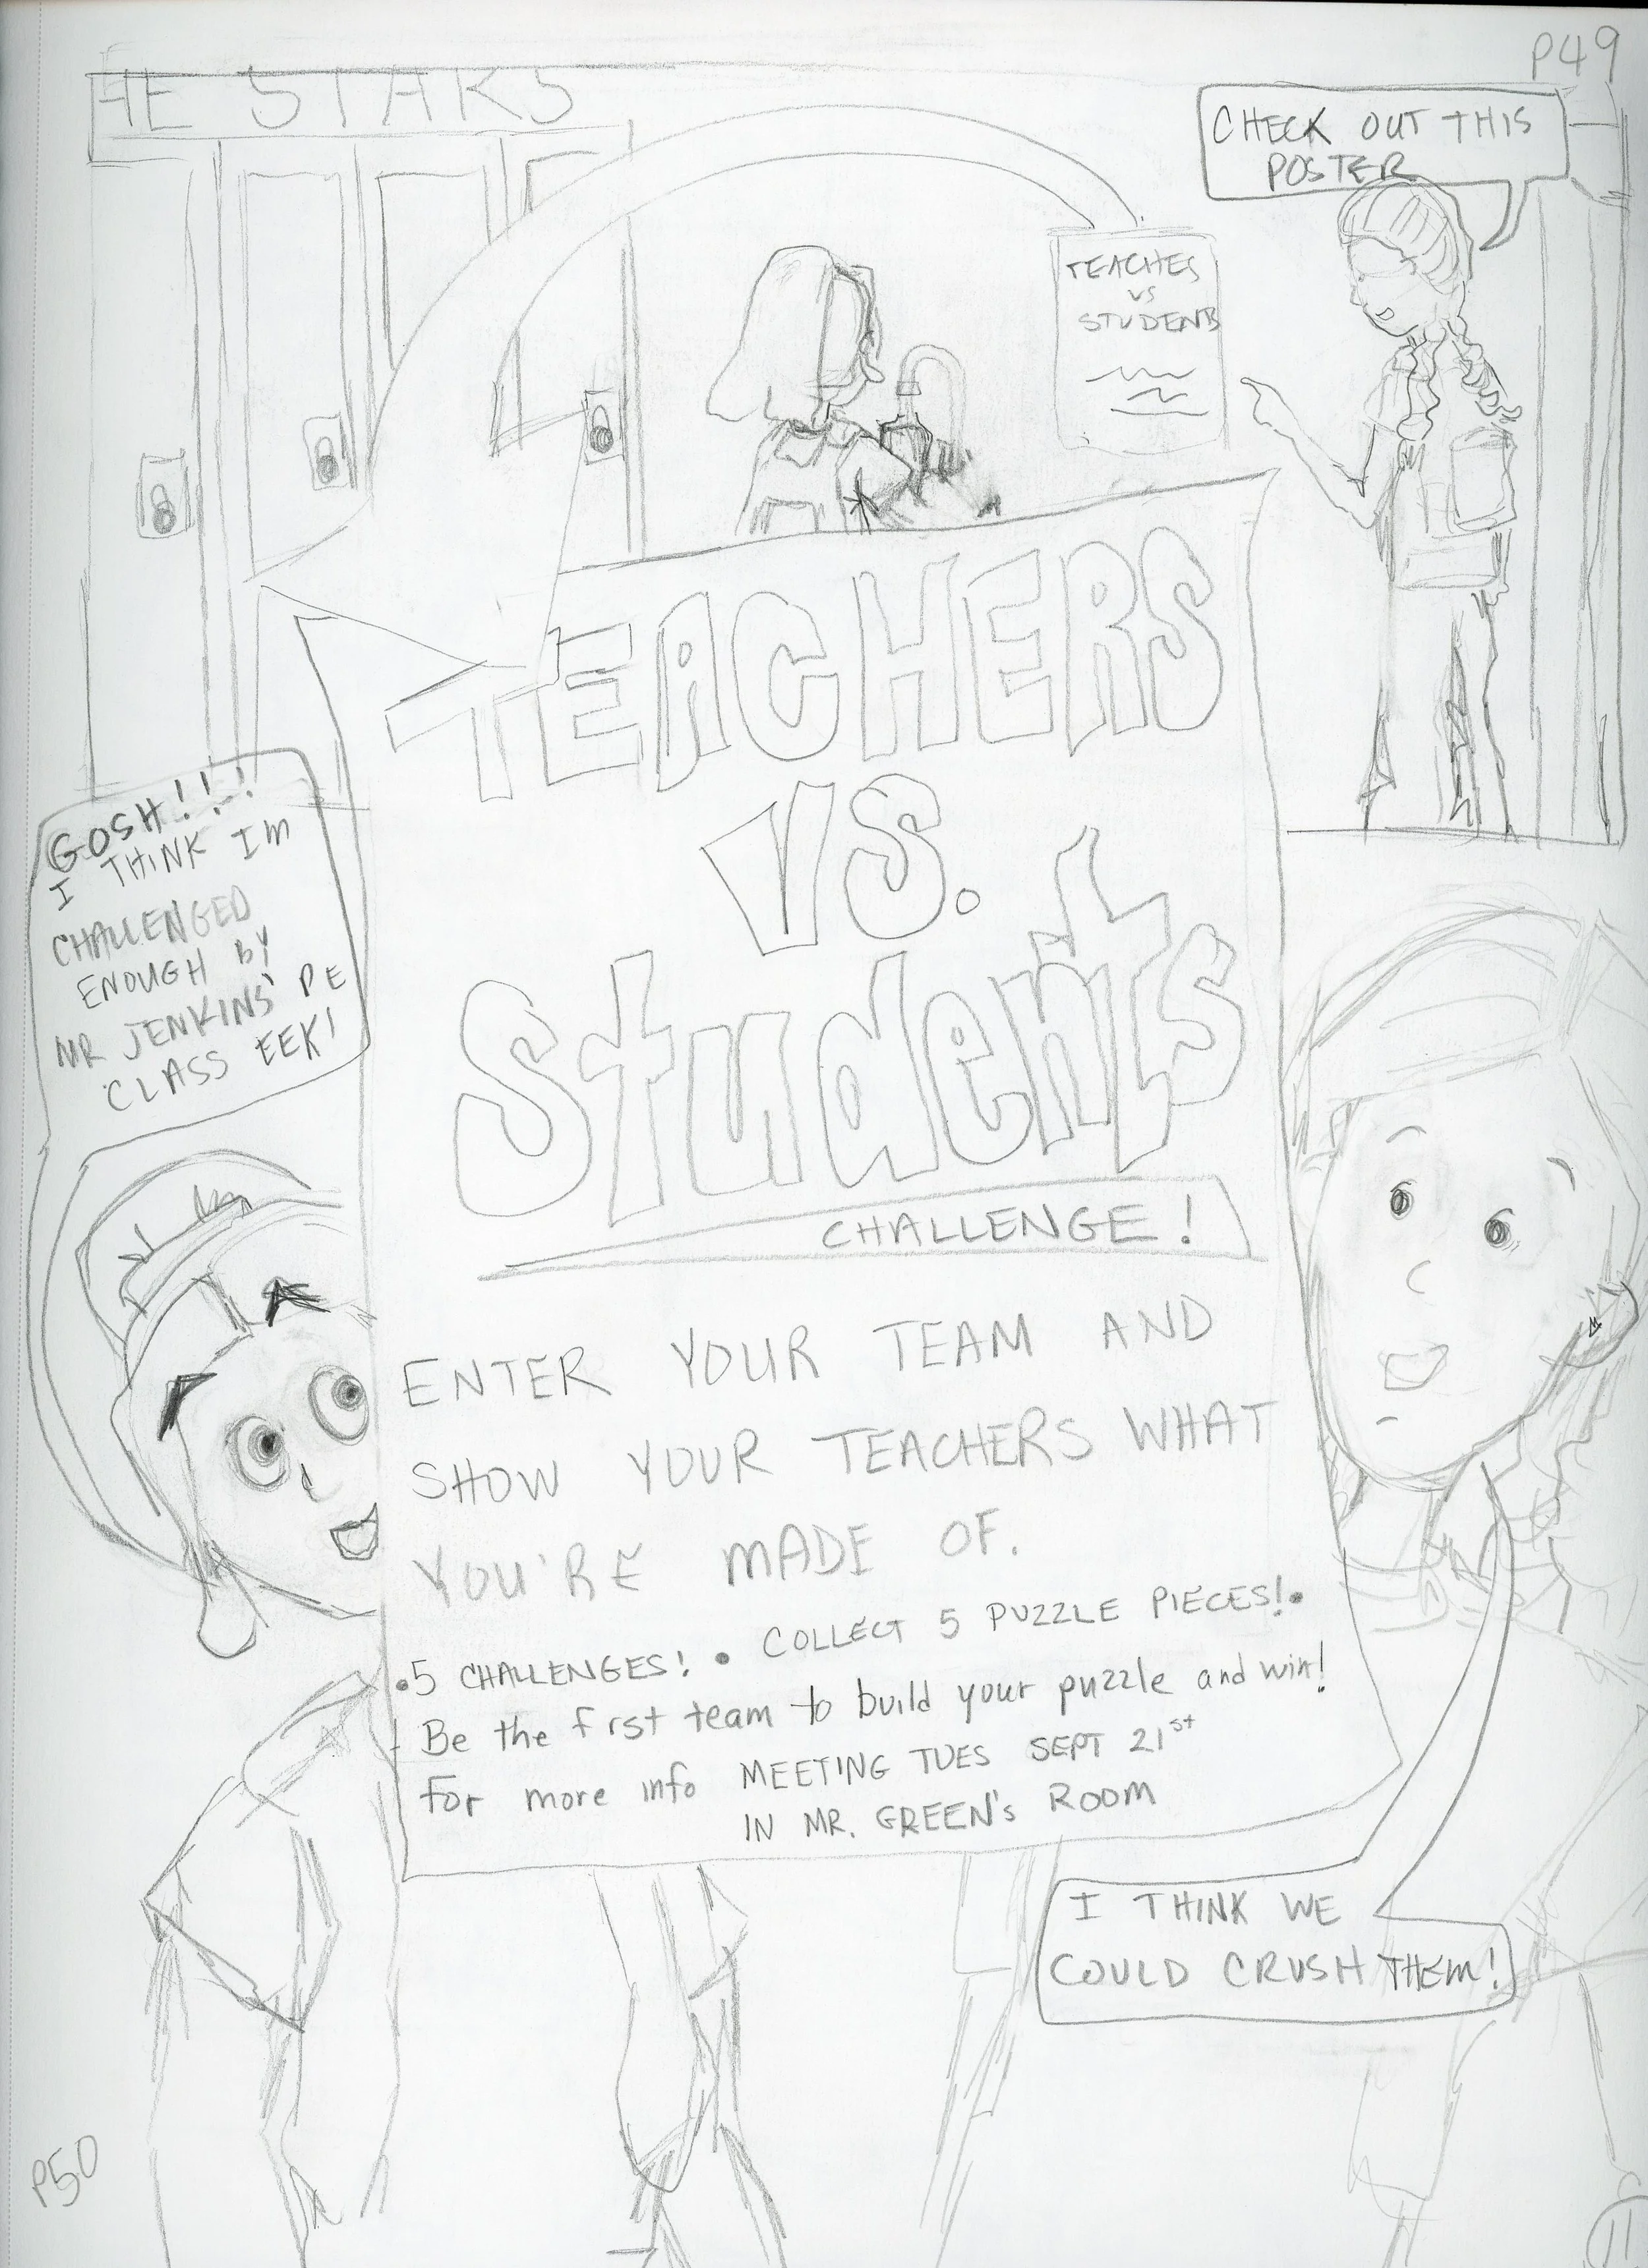 P49
HE STARS
CHECK OUT THIS
POSTER
TEACHES
VS
STUDENTS
TEACHERS
VS.
Students
CHALLENGE!
GOSH!!!
I THINK IM
CHALLENGED
ENOUGH BY
MR JENKINS' PE
CLASS EEK!
ENTER YOUR TEAM AND
SHOW YOUR TEACHERS WHAT
YOU'RE MADE OF.
•5 CHALLENGES! • COLLECT 5 PUZZLE PIECES!•
Be the frst team to build your puzzle and win!
for more info MEETING TUES SEPT 21st
IN MR. GREEN's ROOM
I THINK WE
COULD CRUSH THEM!
P50